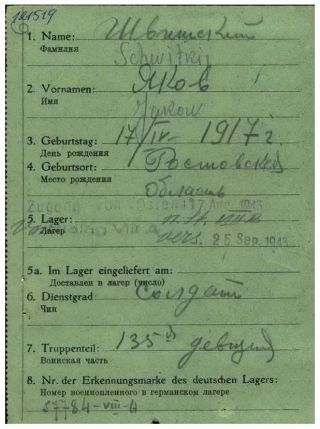 121519
1. Name: Швитский
Фамилия
Schwitkij
2. Vornamen: Яков
Имя
Jakow
3. Geburtstag: 17/IV- 1917 г
День рождения
4. Geburtsort: Ростовская
Место рождения
Область
Zugang von Osten 17 Aug. 1943
5. Lager:
Лагер
vers. 25. Sep. 1943
5a. Im Lager eingeliefert am:
Доставлен в лагер (число)
6. Dienstgrad: Солдат
Чин
7. Truppenteil: 135
Воинская часть
8. Nr. der Erkennungsmarke des deutschen Lagers:
Номер военнопленного в германском лагере
57784-VIII-A